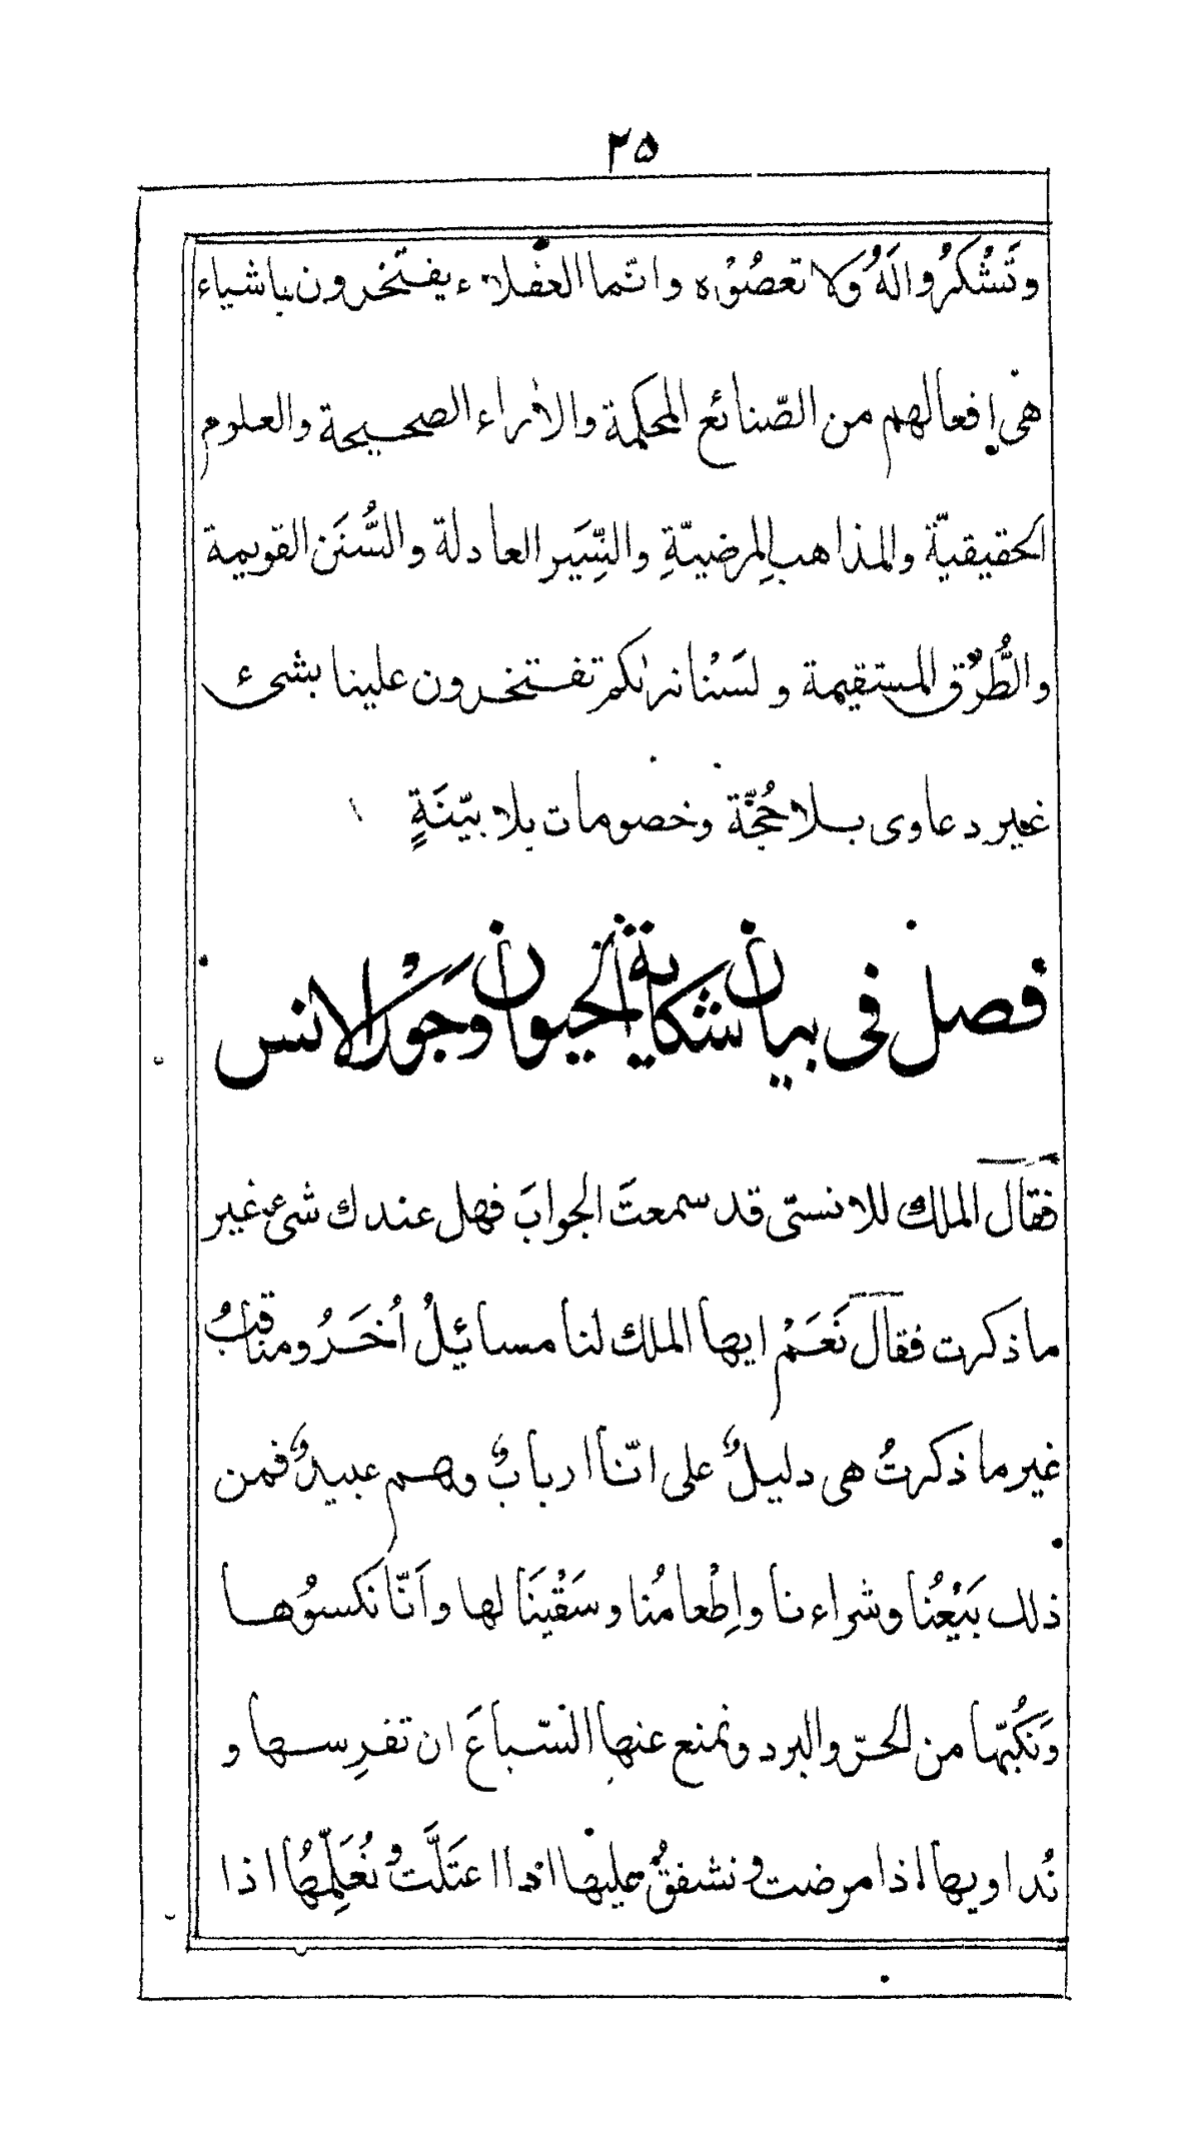 ٢٥
وتَشْكُرُوا لَهُ وَلا تعصُوْه وانّما العقلاء يفتخرون باشياء
هى افعالهم من الصّنائع المحكمة والاٰراء الصحيحة والعلوم
الحقيقيّة والمذاهبِ المرضيّةِ والسِّيَر العادلة والسُّنَن القويمة
والطُّرُق المستقيمة ولسَنْا نرٰىكم تفتخرون علينا بشىء
غير دعاوى بلا حُجّة وخصومات بلا بيّنَةٍ
فصل فى بيان شكاية الحيوان وجَوْر الانس
فقال الملك للانسىّ قد سمعتَ الجوابَ فهل عندك شىء غير
ما ذكرت فقال نَعَمْ ايها الملك لنا مسائيلُ اُخَرُ ومناقبُ
غير ما ذكرتُ هى دليلٌ على انّنا اربابٌ وهم عبيدٌ فمن
ذلك بَيْعُنا وشراءنا واِطْعامُنا وسَقْيَنَا لها واَنّا نَكسوُها
وَنَكُنّها من الحرّ والبرد ونمنع عنها السّباعَ ان تفرِسها و
نُداويها اذا مرضت ونشفقُ عليها اذا اعتَلَّت ونُعَلِّمُها اذا